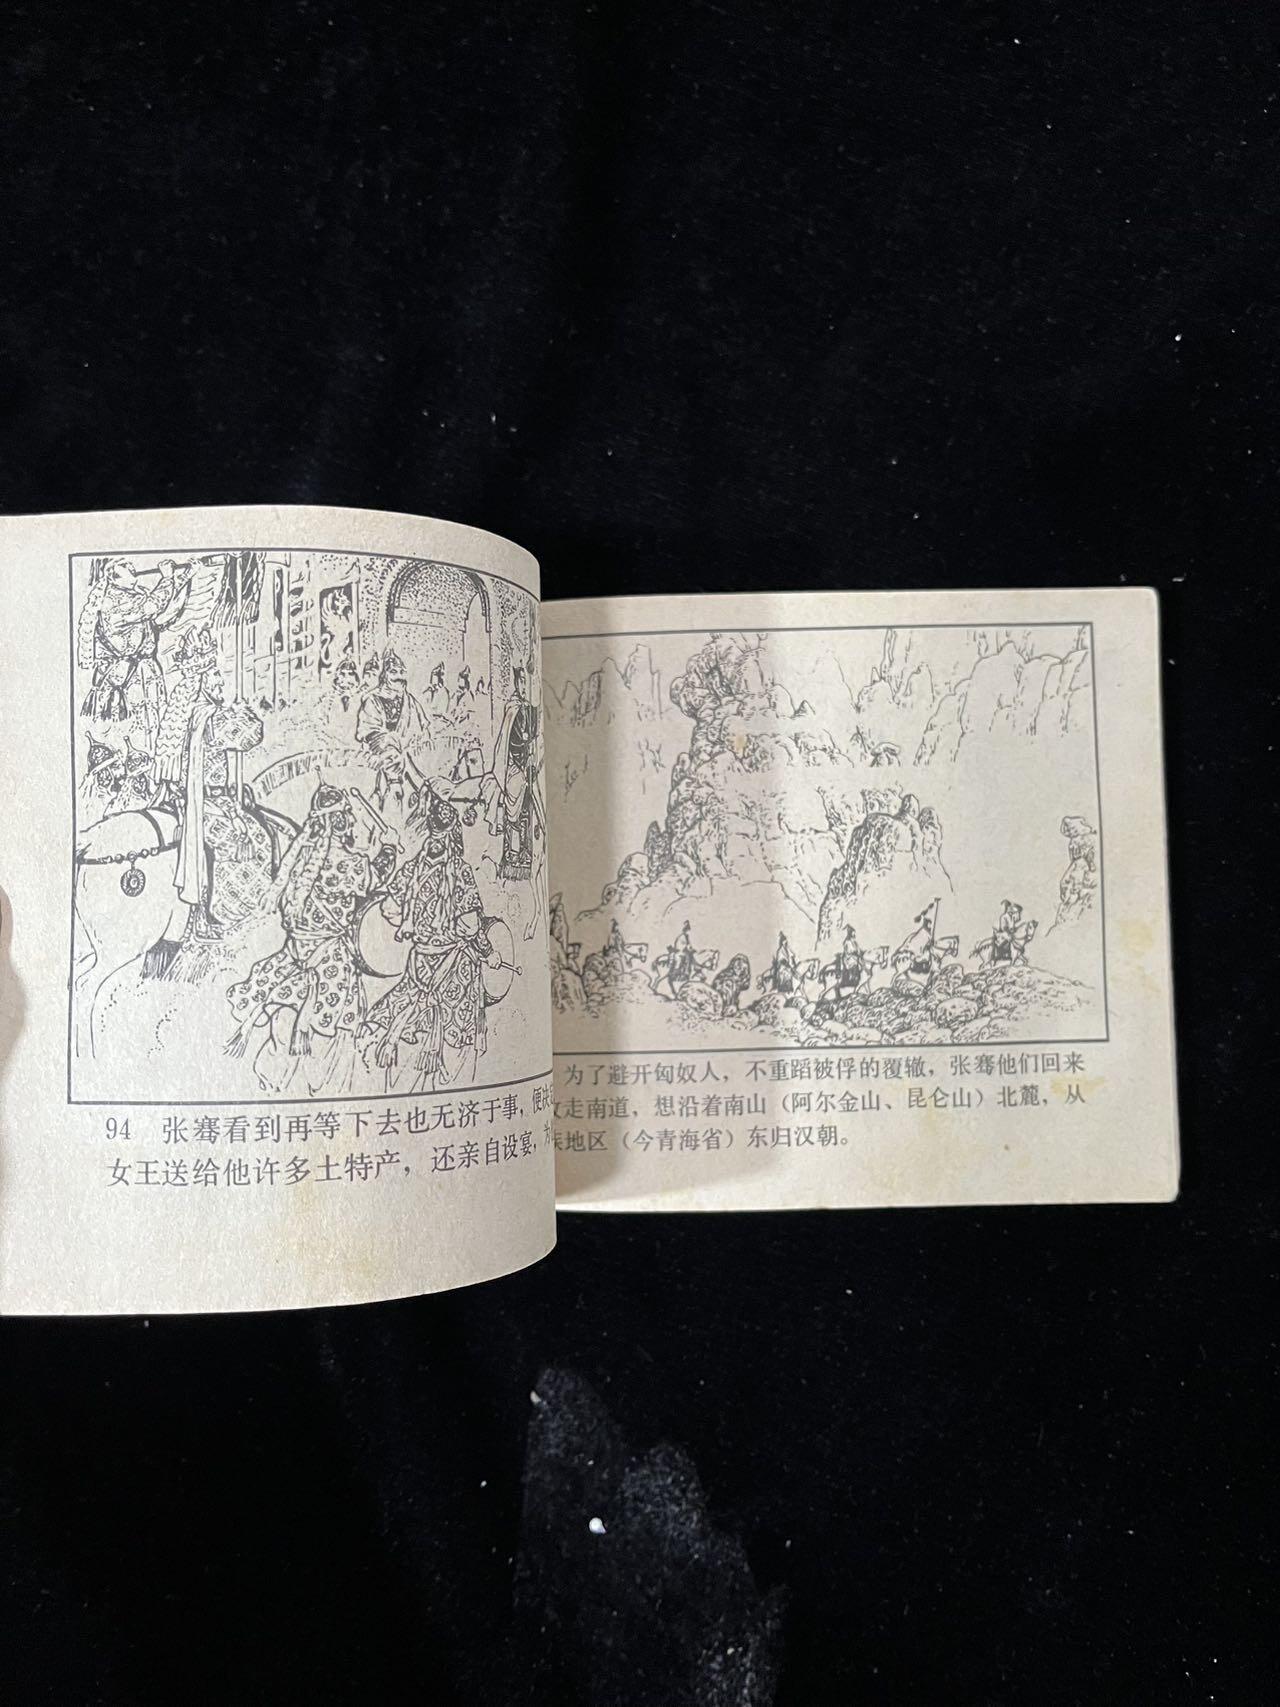 94 张骞看到再等下去也无济于事，便决
女王送给他许多土特产，还亲自设宴，为
为了避开匈奴人，不重蹈被俘的覆辙，张骞他们回来
走南道，想沿着南山（阿尔金山、昆仑山）北麓，从
地区（今青海省）东归汉朝。